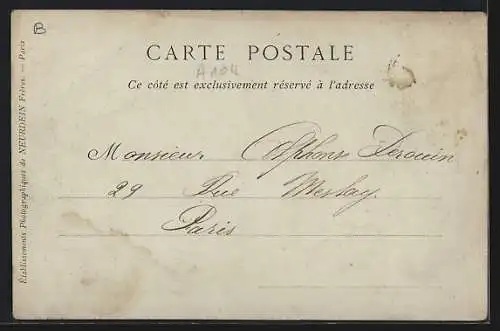 B
CARTE POSTALE
Ce côté est exclusivement réservé à l'adresse
Monsieur Alphonse Derouin
29 Rue Meslay.
Paris
Établissements Photographiques de NEURDEIN Frères. — Paris